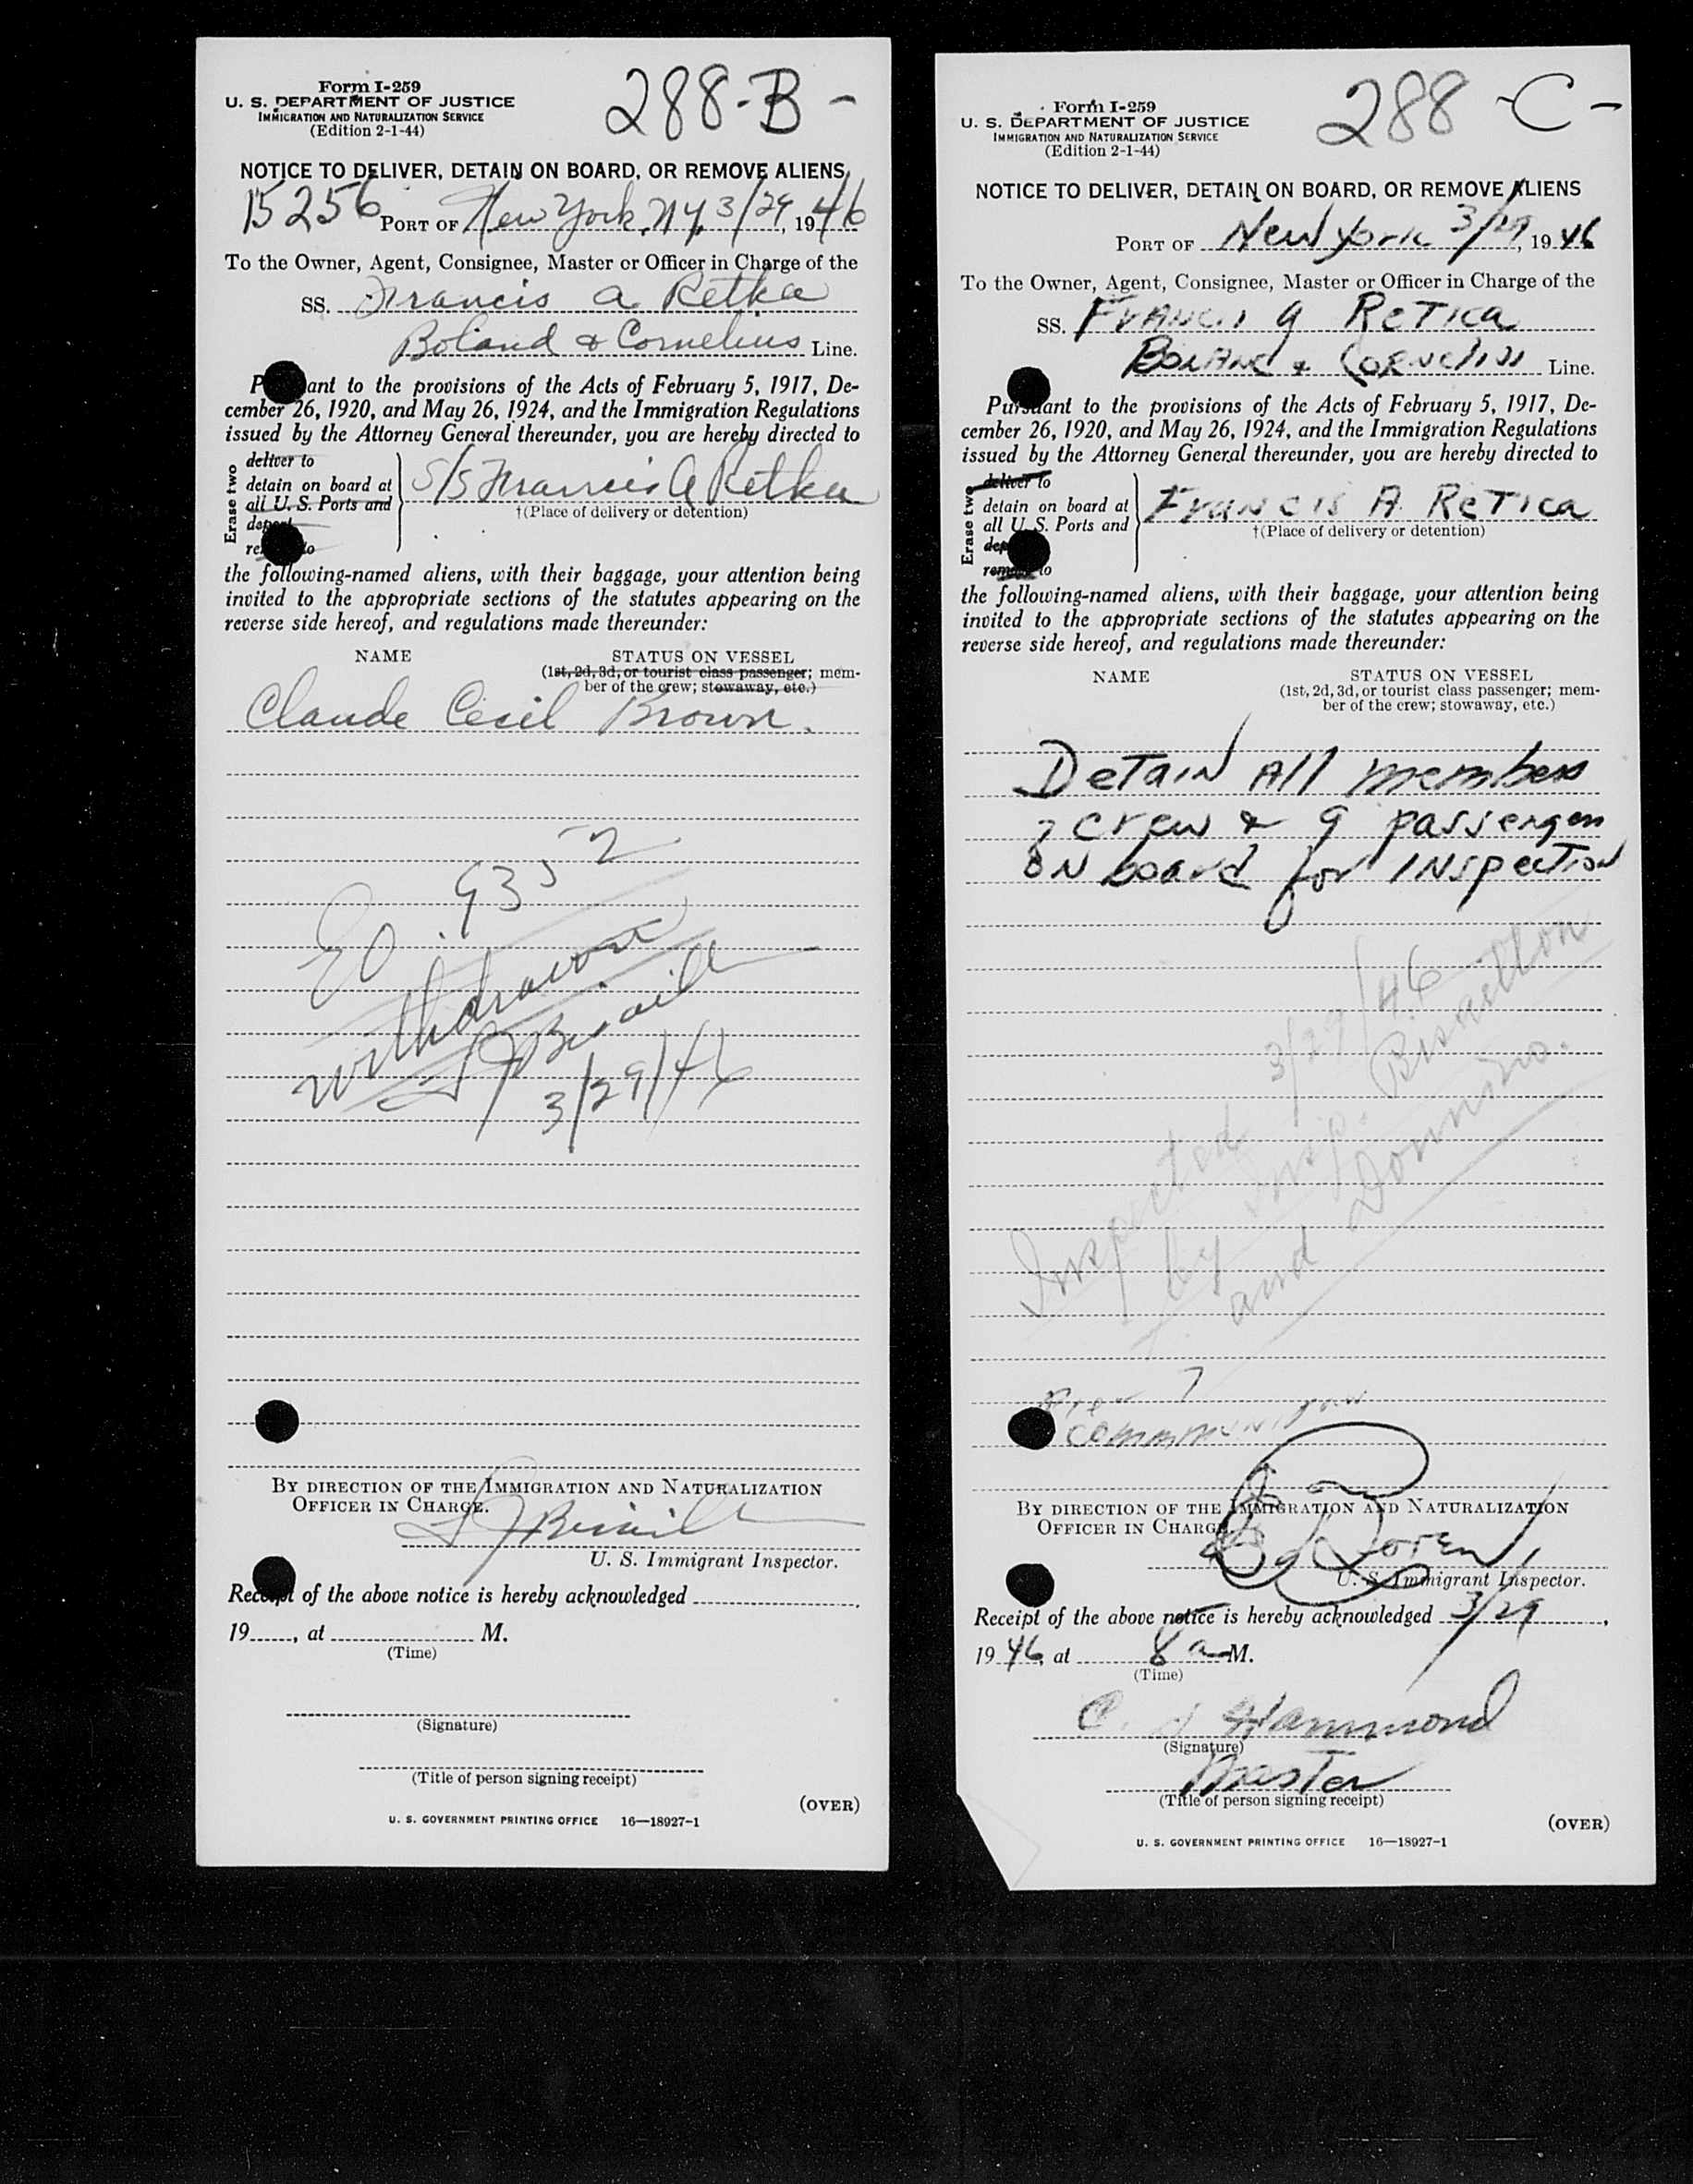 Form I-259
U. S. DEPARTMENT OF JUSTICE
IMMIGRATION AND NATURALIZATION SERVICE
(Edition 2-1-44)
288-B-
NOTICE TO DELIVER, DETAIN ON BOARD, OR REMOVE ALIENS
15256 PORT OF New York, N.Y. 3/29, 1946
To the Owner, Agent, Consignee, Master or Officer in Charge of the
SS. Francis A Retka
Boland & Cornelius Line.
Pursuant to the provisions of the Acts of February 5, 1917, De-
cember 26, 1920, and May 26, 1924, and the Immigration Regulations
issued by the Attorney General thereunder, you are hereby directed to
Erase two
deliver to
detain on board at
all U. S. Ports and
deport
remove to
S/S Francis A Retka
†(Place of delivery or detention)
the following-named aliens, with their baggage, your attention being
invited to the appropriate sections of the statutes appearing on the
reverse side hereof, and regulations made thereunder:
NAME STATUS ON VESSEL
(1st, 2d, 3d, or tourist class passenger; mem-
ber of the crew; stowaway, etc.)
Claude Cecil Brown.
9352
withdrawn
3/29/46
BY DIRECTION OF THE IMMIGRATION AND NATURALIZATION
OFFICER IN CHARGE.
U. S. Immigrant Inspector.
Receipt of the above notice is hereby acknowledged
19, at M.
(Time)
(Signature)
(Title of person signing receipt)
(OVER)
U. S. GOVERNMENT PRINTING OFFICE 16—18927-1
Form I-259
U. S. DEPARTMENT OF JUSTICE
IMMIGRATION AND NATURALIZATION SERVICE
(Edition 2-1-44)
288-C-
NOTICE TO DELIVER, DETAIN ON BOARD, OR REMOVE ALIENS
PORT OF New York 3/29, 1946
To the Owner, Agent, Consignee, Master or Officer in Charge of the
SS. Francis A Retica
Boland & Cornelius Line.
Pursuant to the provisions of the Acts of February 5, 1917, De-
cember 26, 1920, and May 26, 1924, and the Immigration Regulations
issued by the Attorney General thereunder, you are hereby directed to
Erase two
deliver to
detain on board at
all U. S. Ports and
deport
remove to
Francis A. Retica
†(Place of delivery or detention)
the following-named aliens, with their baggage, your attention being
invited to the appropriate sections of the statutes appearing on the
reverse side hereof, and regulations made thereunder:
NAME STATUS ON VESSEL
(1st, 2d, 3d, or tourist class passenger; mem-
ber of the crew; stowaway, etc.)
Detain All members
crew & 9 passengers
on board for Inspection
Inspected 3/29/46
by Insp.
and
BY DIRECTION OF THE IMMIGRATION AND NATURALIZATION
OFFICER IN CHARGE.
U. S. Immigrant Inspector.
Receipt of the above notice is hereby acknowledged 3/29,
1946, at 8 a M.
(Time)
C. Hammond
(Signature)
Master
(Title of person signing receipt)
(OVER)
U. S. GOVERNMENT PRINTING OFFICE 16—18927-1